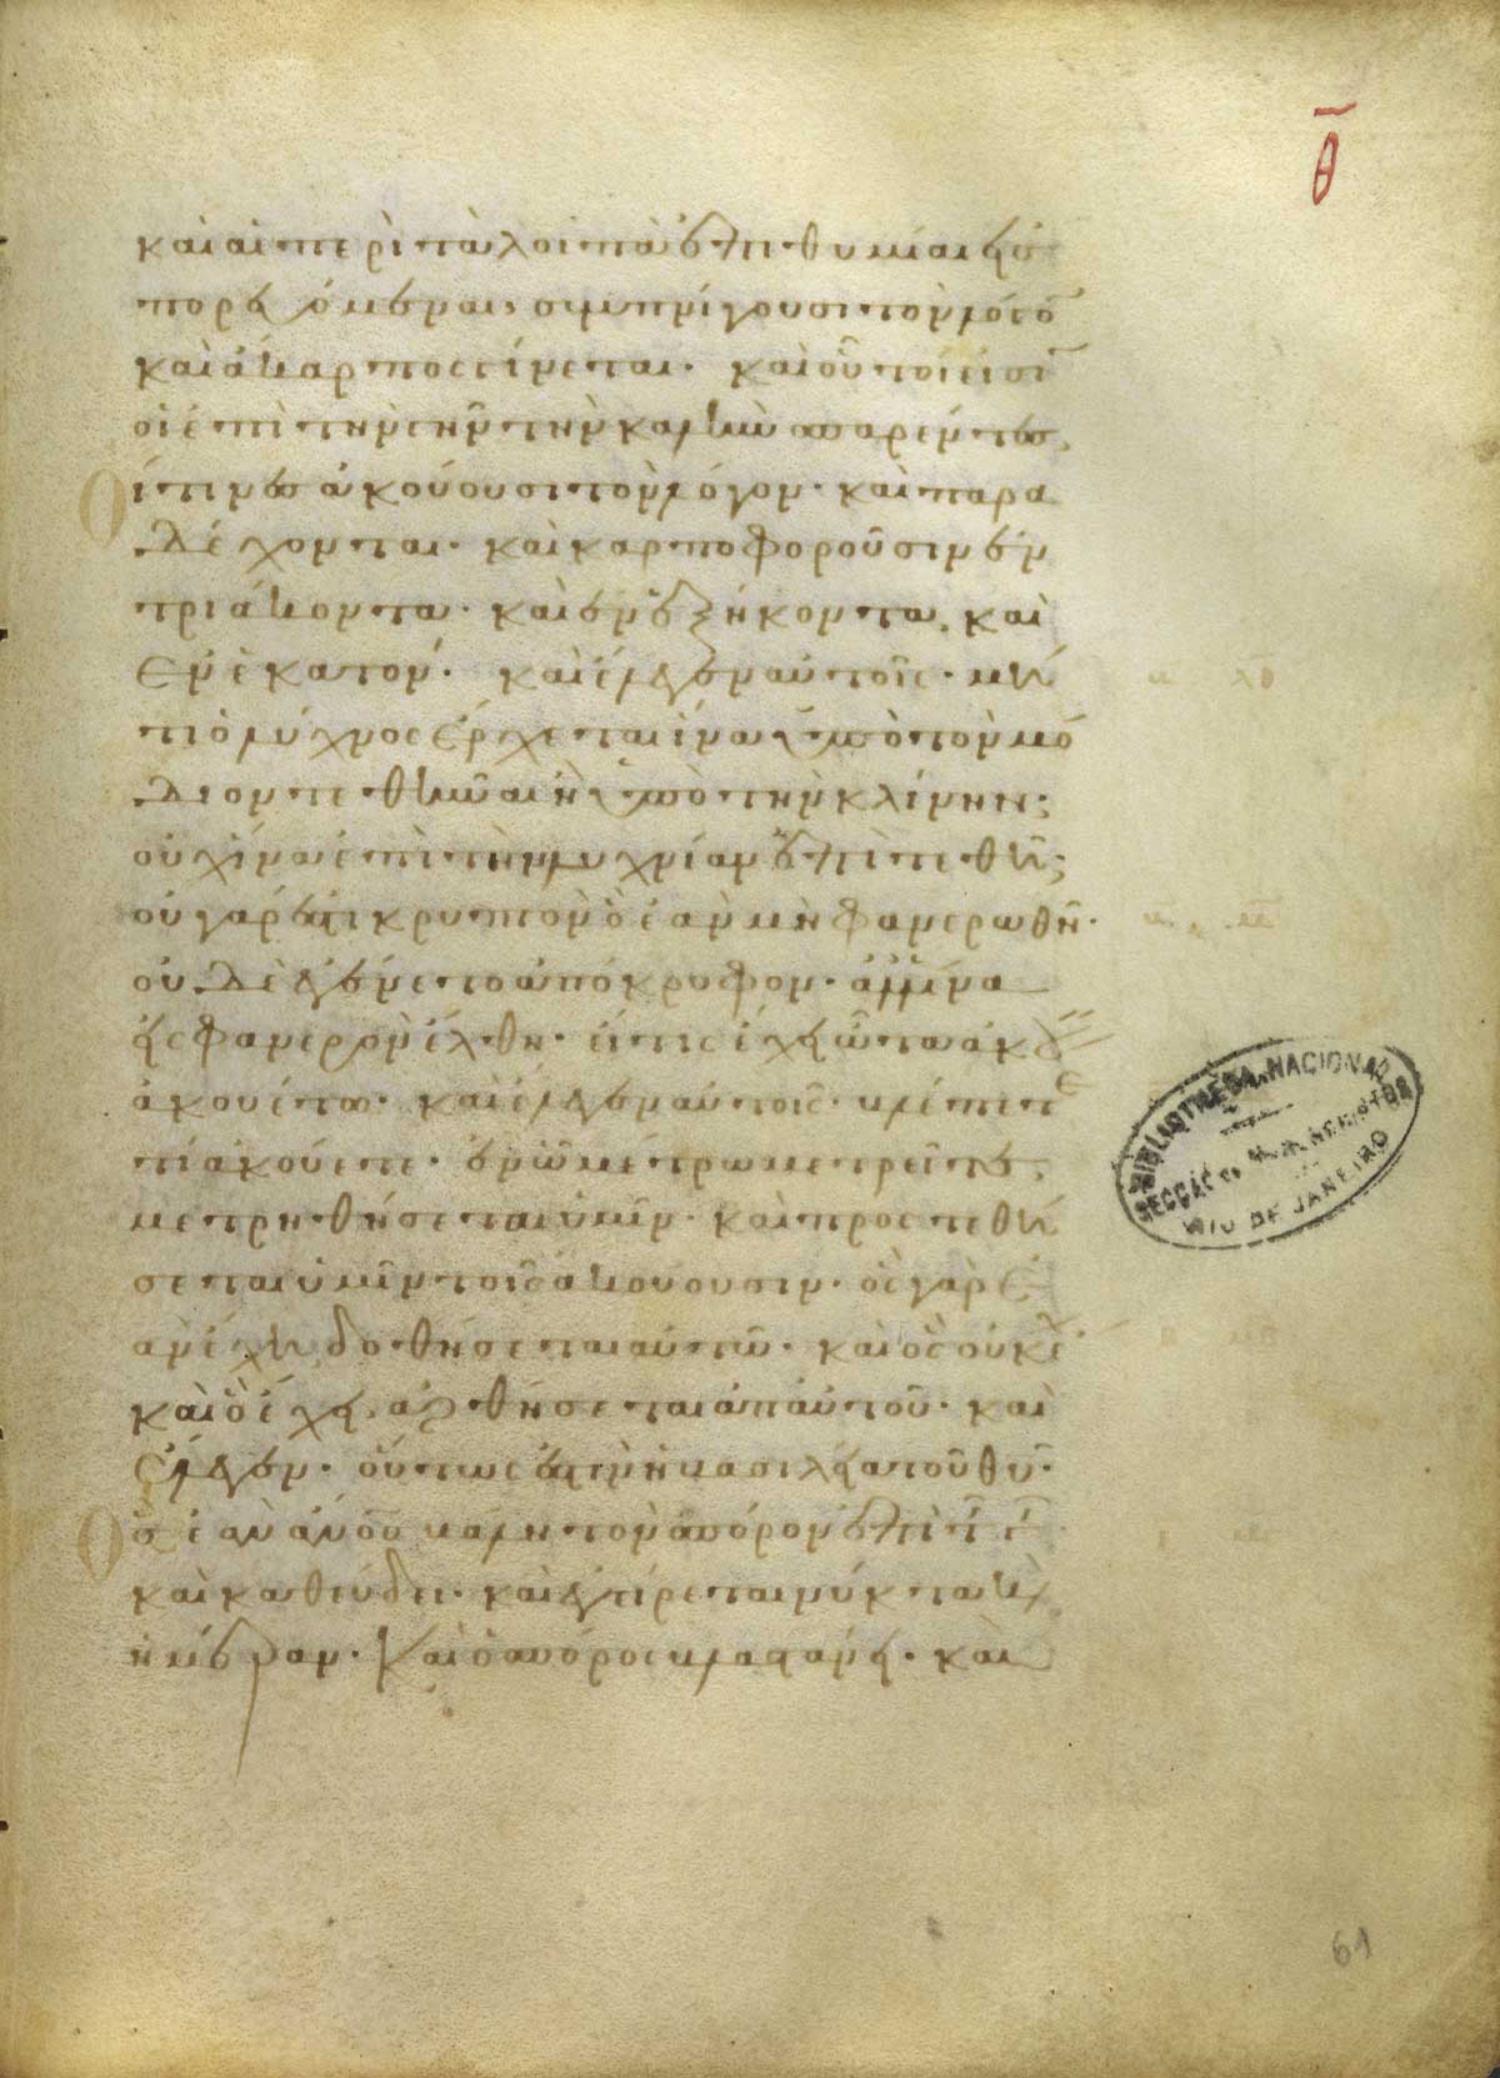 θ
καὶ αἱ περὶ τὰ λοιπὰ ἐπιθυμίαι εἰσ
πορευόμεναι, συμπνίγουσι τὸν λόγο
καὶ ἄκαρπος γίνεται. καὶ οὗτοί εἰσι
οἱ ἐπὶ τὴν γῆν τὴν καλὴν σπαρέντες,
οἵτινες ἀκούουσι τὸν λόγον. καὶ παρα
δέχονται. καὶ καρποφοροῦσιν ἐν
τριάκοντα. καὶ ἐν ἑξήκοντα, καὶ
ἐν ἑκατόν. καὶ ἔλεγεν αὐτοῖς. μή
τι ὁ λύχνος ἔρχεται ἵνα ὑπὸ τὸν μό
διον τεθῆ ἢ ὑπὸ τὴν κλίνην;
οὐχ ἵνα ἐπὶ τὴν λυχνίαν ἐπιτεθῆ;
οὐ γάρ ἐστι κρυπτὸν ὃ ἐὰν μὴ φανερωθῆ.
οὐδὲ ἐγένετο ἀπόκρυφον. ἀλλ' ἵνα
εἰς φανερὸν ἔλθη. εἴ τις ἔχει ὦτα ἀκού
ἀκουέτω. καὶ ἔλεγεν αὐτοῖς. βλέπετε
τί ἀκούετε. ἐν ὧ μέτρω μετρεῖτε,
μετρηθήσεται ὑμῖν. καὶ προστεθή
σεται ὑμῖν τοῖς ἀκούουσιν. ὃς γὰρ
ἂν ἔχη δοθήσεται αὐτῶ. καὶ ὃς οὐκ ἔχ
καὶ ὃ ἔχει, ἀρθήσεται ἀπ' αὐτοῦ. καὶ
ἔλεγεν. οὕτως ἐστὶν ἡ βασιλεία τοῦ θυ.
ὡς ἐὰν ἄνος βάλη τὸν σπόρον ἐπὶ τ γ
καὶ καθεύδει. καὶ ἐγείρεται νύκτα κ
ἡμέραν. καὶ ὁ σπόρος βλαστάνει. καὶ
BIBLIOTHECA NACIONAL
SECCÃO DE MANUSCRIPTOS
RIO DE JANEIRO
61